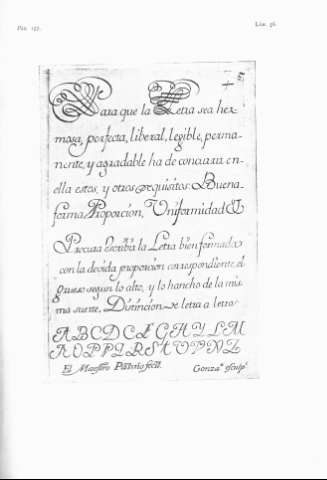 Pág. 157.
Lám. 56.
Para que la Letra sea her
mosa, perfecta, liberal, legible, perma-
nente, y agradable ha de concurrir en-
ella estos, y otros requisitos: Buena
forma, Proporcion, Uniformidad &
Procura escribir la Letra bien formada
con la devida proporcion correspondiente, el
grueso segun lo alto, y lo hancho de la mis
ma suerte, Distincion de letra a letras
El Maestro fecit.
Gonza.z sculp.t